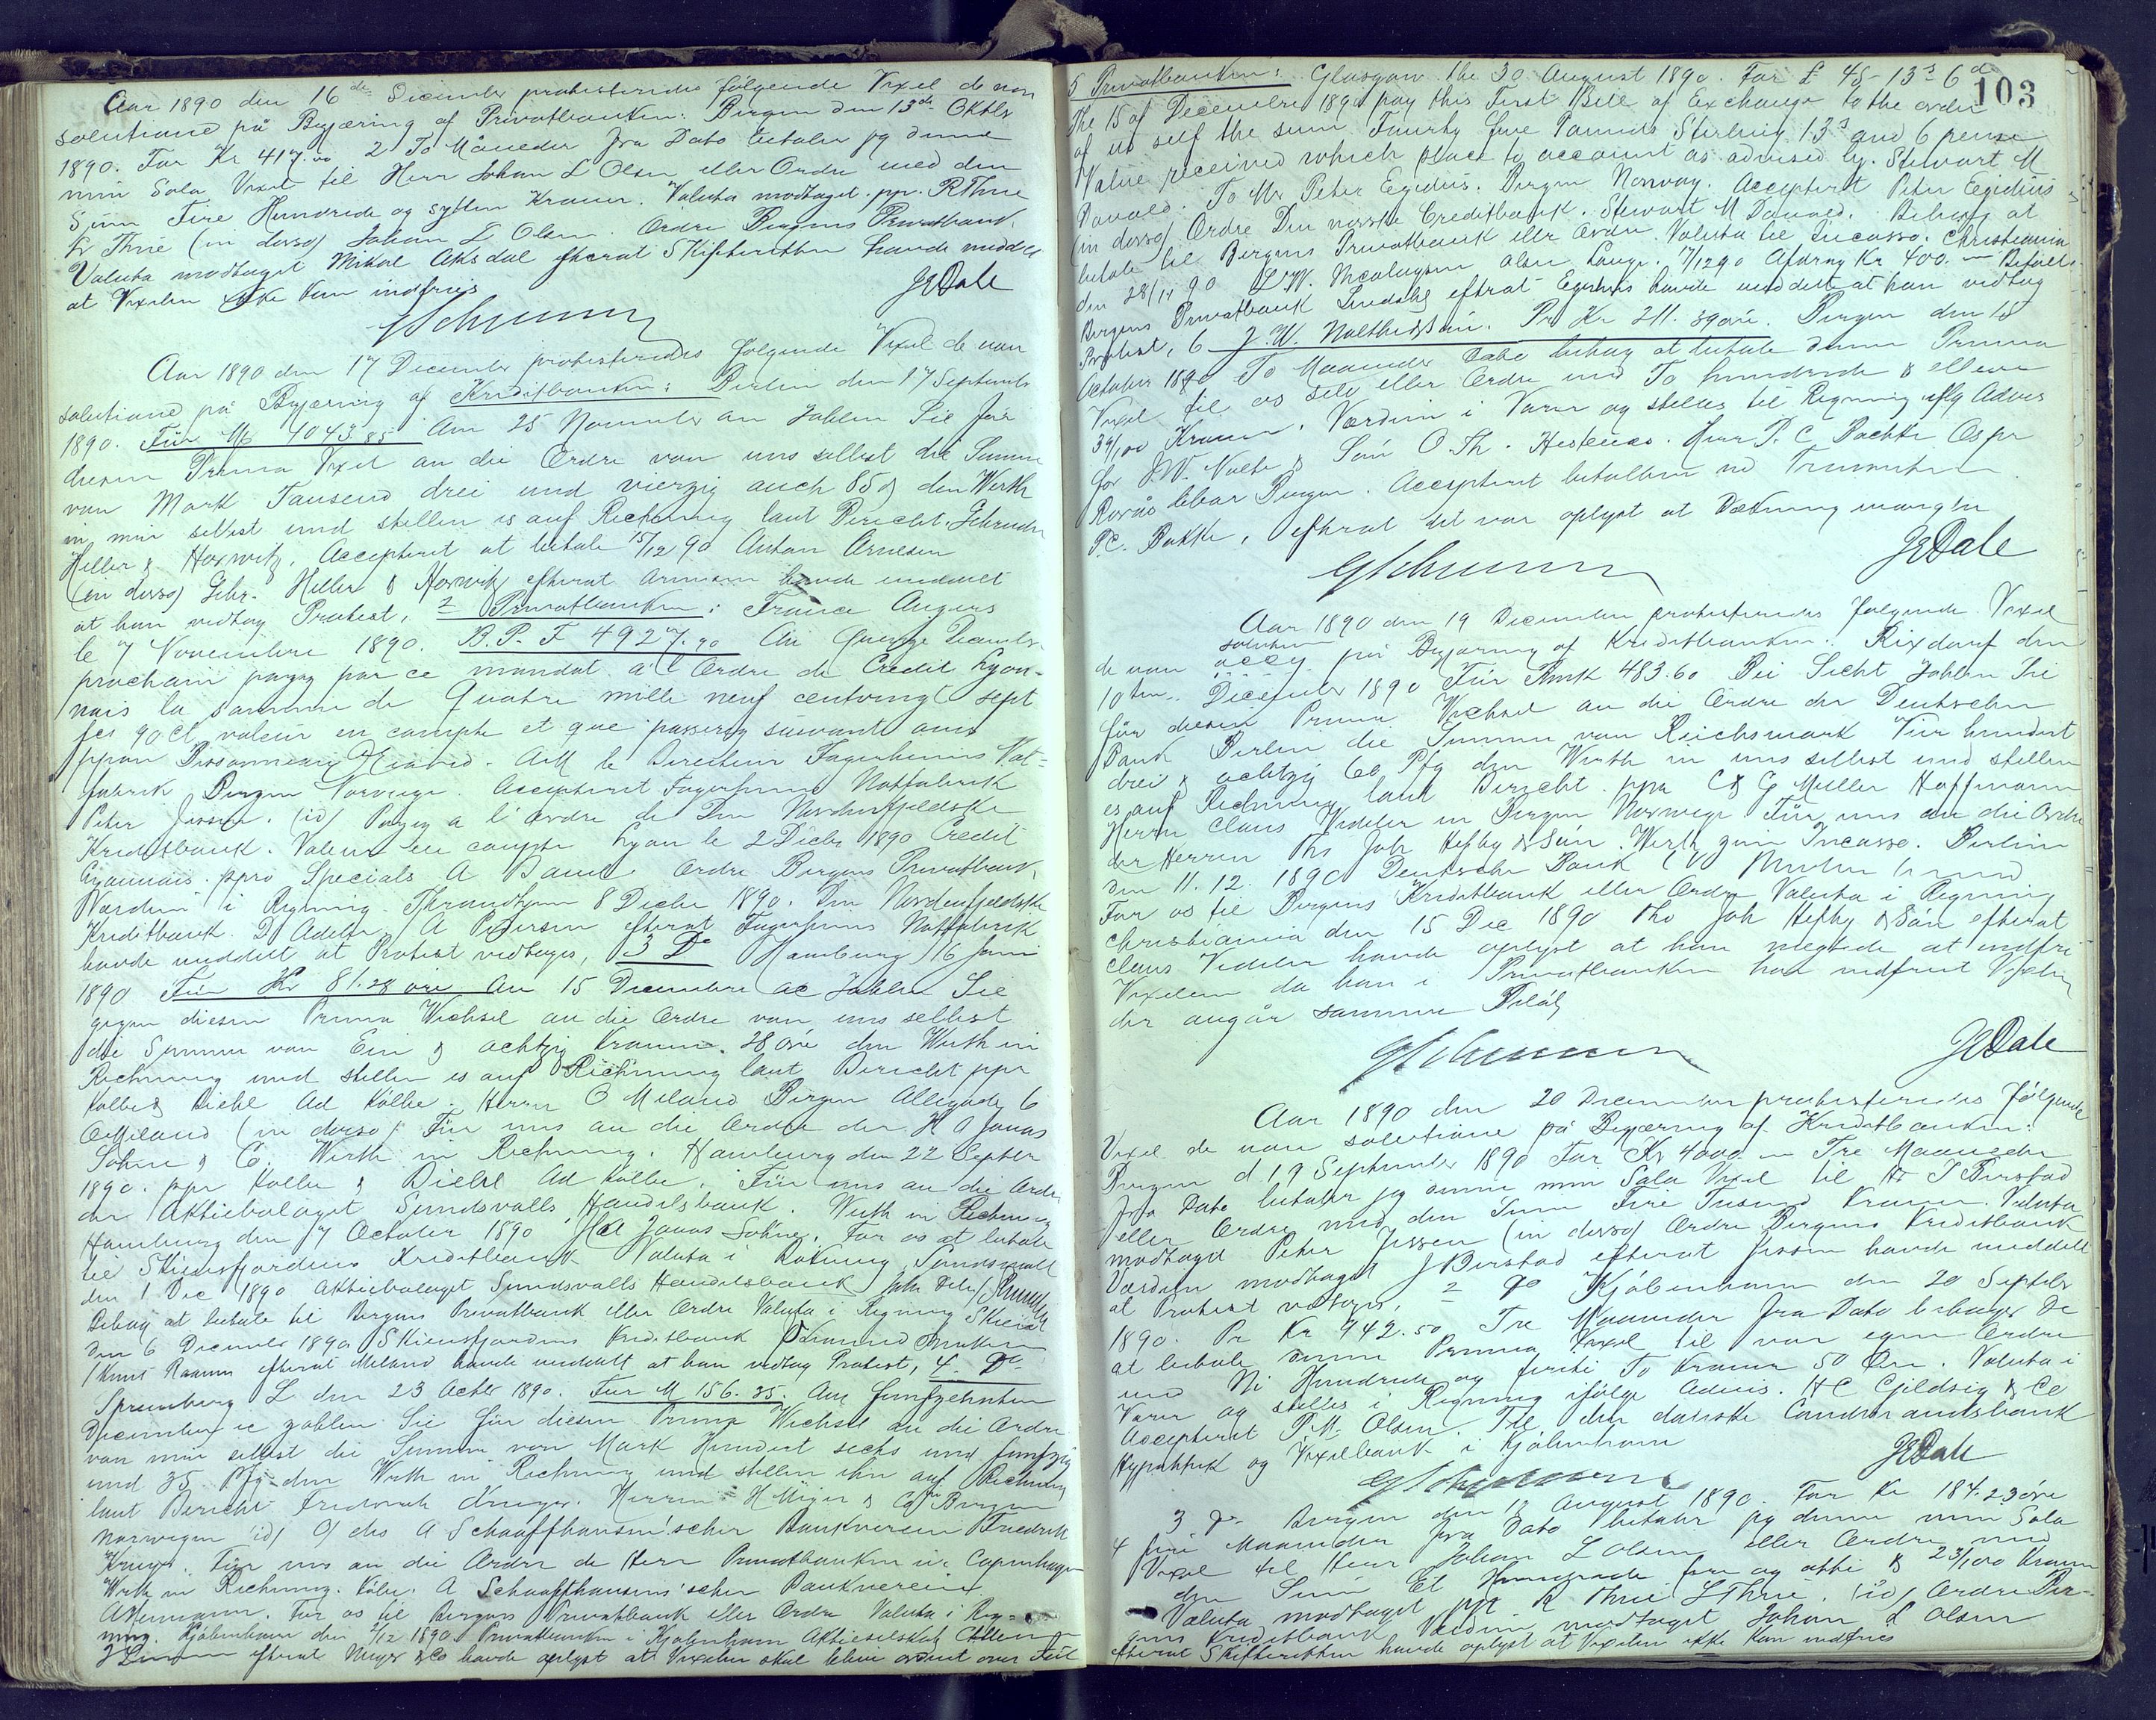 Aar 1890 den 16de December protesteredes følgende Vexel de non
solutione på Begjæring af Privatbanken: Bergen den 13de Oktbr
1890. For Kr 417.00 2 To Måneder fra Dato betaler jeg denne
min Sola Vexel til Herr Johan L Olsen eller Ordre med den
Sum Fire Hundrede og sytten Kroner. Valuta modtaget. ppr. R Thue
L Thue (in dosso) Johan L Olsen. Ordre Bergens Privatbank.
Valuta modtaget Mikal Aksdal efterat Skifteretten havde meddelt
at Vexelen ikke kan indfries
JEDale
Aar 1890 den 17 December protesteredes følgende Vexel de non
solutione på Begjæring af Kreditbanken: Berlin den 17 Septembr
1890. Für M 1043.85 Am 25 November an Zahlen Sie für
diesen Prima Vexel an die Ordre von uns selbst die Summe
von Mark Tausend drei und vierzig auch 85 den Werth
in mir selbst und stellen es auf Rechnung laut Bericht. Gebrüder
Heller & Horwitz. Accepteret at betale 15/12 90 Anton Arnesen
(in dosso) Gebr. Heller & Horwitz efterat Arnesen havde meddelt
at han vedtog Protest, 2 Privatbanken: France Angers
le 7 Novembre 1890. B.P. F 4927.90 Au Quinze Decembre
prochain payez par ce mandat a l'Ordre de Credit Lyon-
nais la somme de Quatre mille neuf centvingt sept
fcs 90 ct valeur en compte et que passerez suivant avis
ppon Bessonneau. A M le Directeur Fagerheims Not-
fabrik Bergen Norvege. Accepteret Fagerheims Notfabrik
Peter Jessen. (id) Payez a l'ordre de Den Nordenfjeldske
Kreditbank. Valeur en compte Lyon le 2 Dicbr 1890 Credit
Lyonnais. ppro Specials A Ordre Bergens Privatbank,
Værdien i Regning. Throndhjem 8 Decbr 1890. Den Nordenfjeldske
Kreditbank. A Petersen efterat Fagerheims Notfabrik
havde meddelt at Protest vedtages, 3 Do Hamburg 16 Juni
1890 Für Kr 81.28 öre Am 15 Decembre ac Zahlen Sie
gegen diesen Prima Wechsel an die Ordre von uns selbst
die Summe von Ein & achtzig Kronen. 28 öre den Werth in
Rechnung und stellen es auf Rechnung laut Bericht ppr
Kolbe & Diehl Ad Kölbe. Herrn O Meland Bergen Allegade 6
O Meland (in dorso) Für uns an die Ordre der H A Jonas
Söhne & Co. Werth in Rechnung. Hamburg den 22 Septbr
1890. ppr Kolbe & Diehl Ad Kolbe. Für uns an die Ordre
der Aktiebolaget Sundsvalls Handelsbank. Werth in Rechnung
Hamburg den 7 October 1890 H A Jonas Söhne. For os at betale
til Skiensfjordens Kreditbank Valuta i Räkning Sundsvall
den 1 Dec 1890 Aktiebolaget Sundsvalls Handelsbank
Behag at betale til Bergens Privatbank eller Ordre Valuta i Regning Skien
den 6 December 1890 Skiensfjordens Kreditbank
Knut Raanes efterat Meland havde meddelt at han vedtog Protest, 4 Do
Spremberg L. den 23 Octbr 1890. Für M 156.35. Am fünfzehnten
December ac zahlen Sie für diesen Prima Wechsel an die Ordre
von mir selbst die Summe von Mark Hundert sechs und fünfzig
und 35 Pfg den Werth in Rechnung und stellen ihn auf Rechnung
laut Bericht Friedrich Krüger. Herren H Meyer & Co Bergen
Norwegen (id) O/ des A Schaaffhausen'scher Bankverein Friedrich
Krüger. Für uns an die Ordre de Herr Privatbanken in Copenhagen
Werth in Rechnung. Köln. A Schaaffhausens'scher Bankverein
For os til Bergens Privatbank eller Ordre Valuta i Reg-
ning. Kjøbenhavn den 2/12 1890 Privatbanken i Kjøbenhavn Aktieselskab
efterat Meyer & Co havde oplyst at Vexelen skal blive ordnet over
103
5 Privatbanken: Glasgow the 30 August 1890. For £ 45-13s 6d
The 15 of Decembre 1890 pay this First Bill of Exchange to the order
of us self the sum Fourty five Pounds Sterling 13s and 6 pence
Value received which place to account as advised by. Stewart M
Donald. To Mr Peter Egidius. Bergen Norway. Accepteret Peter Egidius
(in dosso) Ordre Den norske Creditbank. Stewart M Donald. Behag at
betale til Bergens Privatbank eller Ordre. Valuta til Incasso. Christiania
den 28/11 90 Olsen Lange. 7/12 90 Afdrag Kr 400.
Bergens Privatbank Lindahl efterat Egidius havde meddelt at han vedtog
Protest, 6 J. W. Nolthe & Søn. Pr Kr 211.39 øre. Bergen den 18
October 1890 To Maaneder Dato behag at betale denne Prima
Vexel til os selv eller Ordre med To hundrede & elleve
39/100 Kroner. Værdien i Varer og stilles til Regning iflg Advis
for J.W. Nolte & Søn O. Th. Hestenes. Herr P. C Bakke Os pr
Bergen. Accepteret betalbar ved
P.C. Bakke, efterat det var oplyst at Dækning mangler
JEDale
Aar 1890 den 19 December protesteredes følgende Vexel
solution
de non accep. på Begjæring af Kreditbanken. Rixdorf den
10ten December 1890 Für Rmk 483.60 Bei Sicht Zahlen Sie
für diesen Prima Wechsel an die Ordre der Deutschen
Bank Berlin die Summe von Reichsmark Vier hundert
drei & achtzig 60 Pfg den Werth in uns selbst und stellen
es auf Rechnung laut Bericht. ppa C & G Müller Hoffmann
Herrn Claus Wideler in Bergen Norwege Für uns an die Ordre
der Herren Ths Joh Heftye & Søn. Werth zum Incasso. Berlin
den 11.12.1890 Deutsche Bank
For os til Bergens Kreditbank eller Ordre Valuta i Regning
Christiania den 15 Dec 1890 Tho Joh Heftye & Søn efterat
Claus Videler havde oplyst at han negtede at indfri
Vexelen da han i Privatbanken har indfriet Vexelen
der angår samme Beløb
JEDale
Aar 1890 den 20 December protesteredes følgende
Vexel de non solutione på Begjæring af Kreditbanken:
Bergen d 19 September 1890 For Kr 4000 – Tre Maaneder
fra Dato betaler jeg denne min Sola Vexel til Hr J Birstad
eller Ordre med den Sum Fire Tusend Kroner. Valuta
modtaget Peter Jessen (in dosso) Ordre Bergens Kreditbank
Værdien modtaget J Birstad efterat Jessen havde meddelt
at Protest vedtoges, 2 do Kjøbenhavn den 20 Septbr
1890. Pr Kr 942.50 Tre Maaneder fra Dato behager De
at betale denne Prima Vexel til vor egen Ordre
med Ni Hundrede og førti To Kroner 50 Øre. Valuta i
Varer og stilles i Regning ifølge Advis. H C Gjeldsig & Co
Accepteret P. M. Olsen. Til den danske Landmandsbank
Hypothek og Vexelbank i Kjøbenhavn
JEDale
3 do Bergen den 12 August 1890. For Kr 184.23 øre
4 fire Maaneder fra Dato betaler jeg denne min Sola
Vexel til Herr Johan L Olsen eller Ordre med
den Sum Et Hundrede fire og otti & 23/100 Kroner
Valuta modtaget ppr R Thue L Thue. (id) Ordre Ber-
gens Kreditbank Værdien modtaget Johan L Olsen
efterat Skifteretten havde oplyst at Vexelen ikke kan indfries